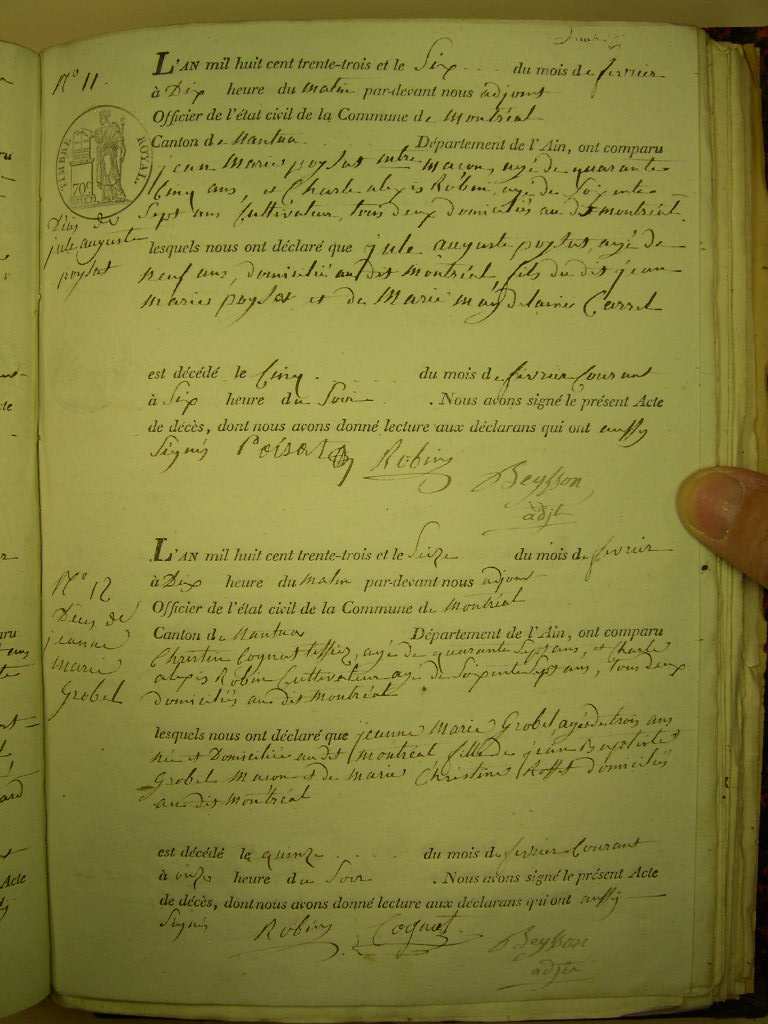 N.o 11.
L'AN mil huit cent trente-trois et le Six du mois de fevrier
à Dix heure du matin par-devant nous adjoint
Officier de l'état civil de la Commune de Montréal
Canton de Nantua Département de l'Ain, ont comparu
TIMBRE ROYAL.
jean Marie poysat mtre macon, agé de quarante
Cinq ans, et Charle alexis Robin agé de Soixente
Sept ans Cultivateur, tous deux domiciliés au dit montréal
Déis de
jule auguste
poysat
lesquels nous ont déclaré que jule auguste poysat agé de
neuf ans, domicilié au dit Montréal, fils du dit jean
Marie poysat et de Marie magdelaine Carrel
est décédé le Cinq du mois de fevrier Courant
à Six heure du Soir . Nous avons signé le présent Acte
de décès, dont nous avons donné lecture aux déclarans qui ont aussy
Signés Poisat Robin
Beysson
adjt
N.o 12
L'AN mil huit cent trente-trois et le Seize du mois de fevrier
à Dix heure du Matin par-devant nous adjoint
Officier de l'état civil de la Commune de Montréal
Déus de
jeanne
marie
Grobel
Canton de Nantua Département de l'Ain, ont comparu
Christin Cognat tessier, agé de quarante Sept ans, et Charle
alexis Robin Cultivateur agé de Soixente Sept ans, tous deux
domiciliés au dit Montréal
lesquels nous ont déclaré que jeanne Marie Grobel agée de trois ans
née et Domiciliée au dit montréal fille de jean Baptiste
Grobel Macon et de Marie Christine Roffet domiciliés
au dit Montréal
est décédé le quinze du mois de fevrier Courant
à onze heure du Soir . Nous avons signé le présent Acte
de décès, dont nous avons donné lecture aux déclarans qui ont aussy
Signés Robin Cognat
Beysson
adjt